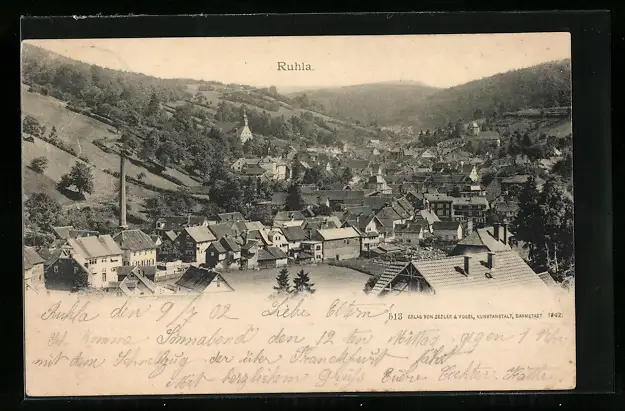 Ruhla.
613 VERLAG VON ZEDLER & VOGEL, KUNSTANSTALT, DARMSTADT. 1902.
Ruhla den 9/7 02 Liebe Eltern!
Ich komme Sonnabend den 12ten Mittag gegen 1 Uhr
mit dem Schnellzug der über Frankfurt fährt
Mit herzlichem Gruß Eure Tochter Käthe